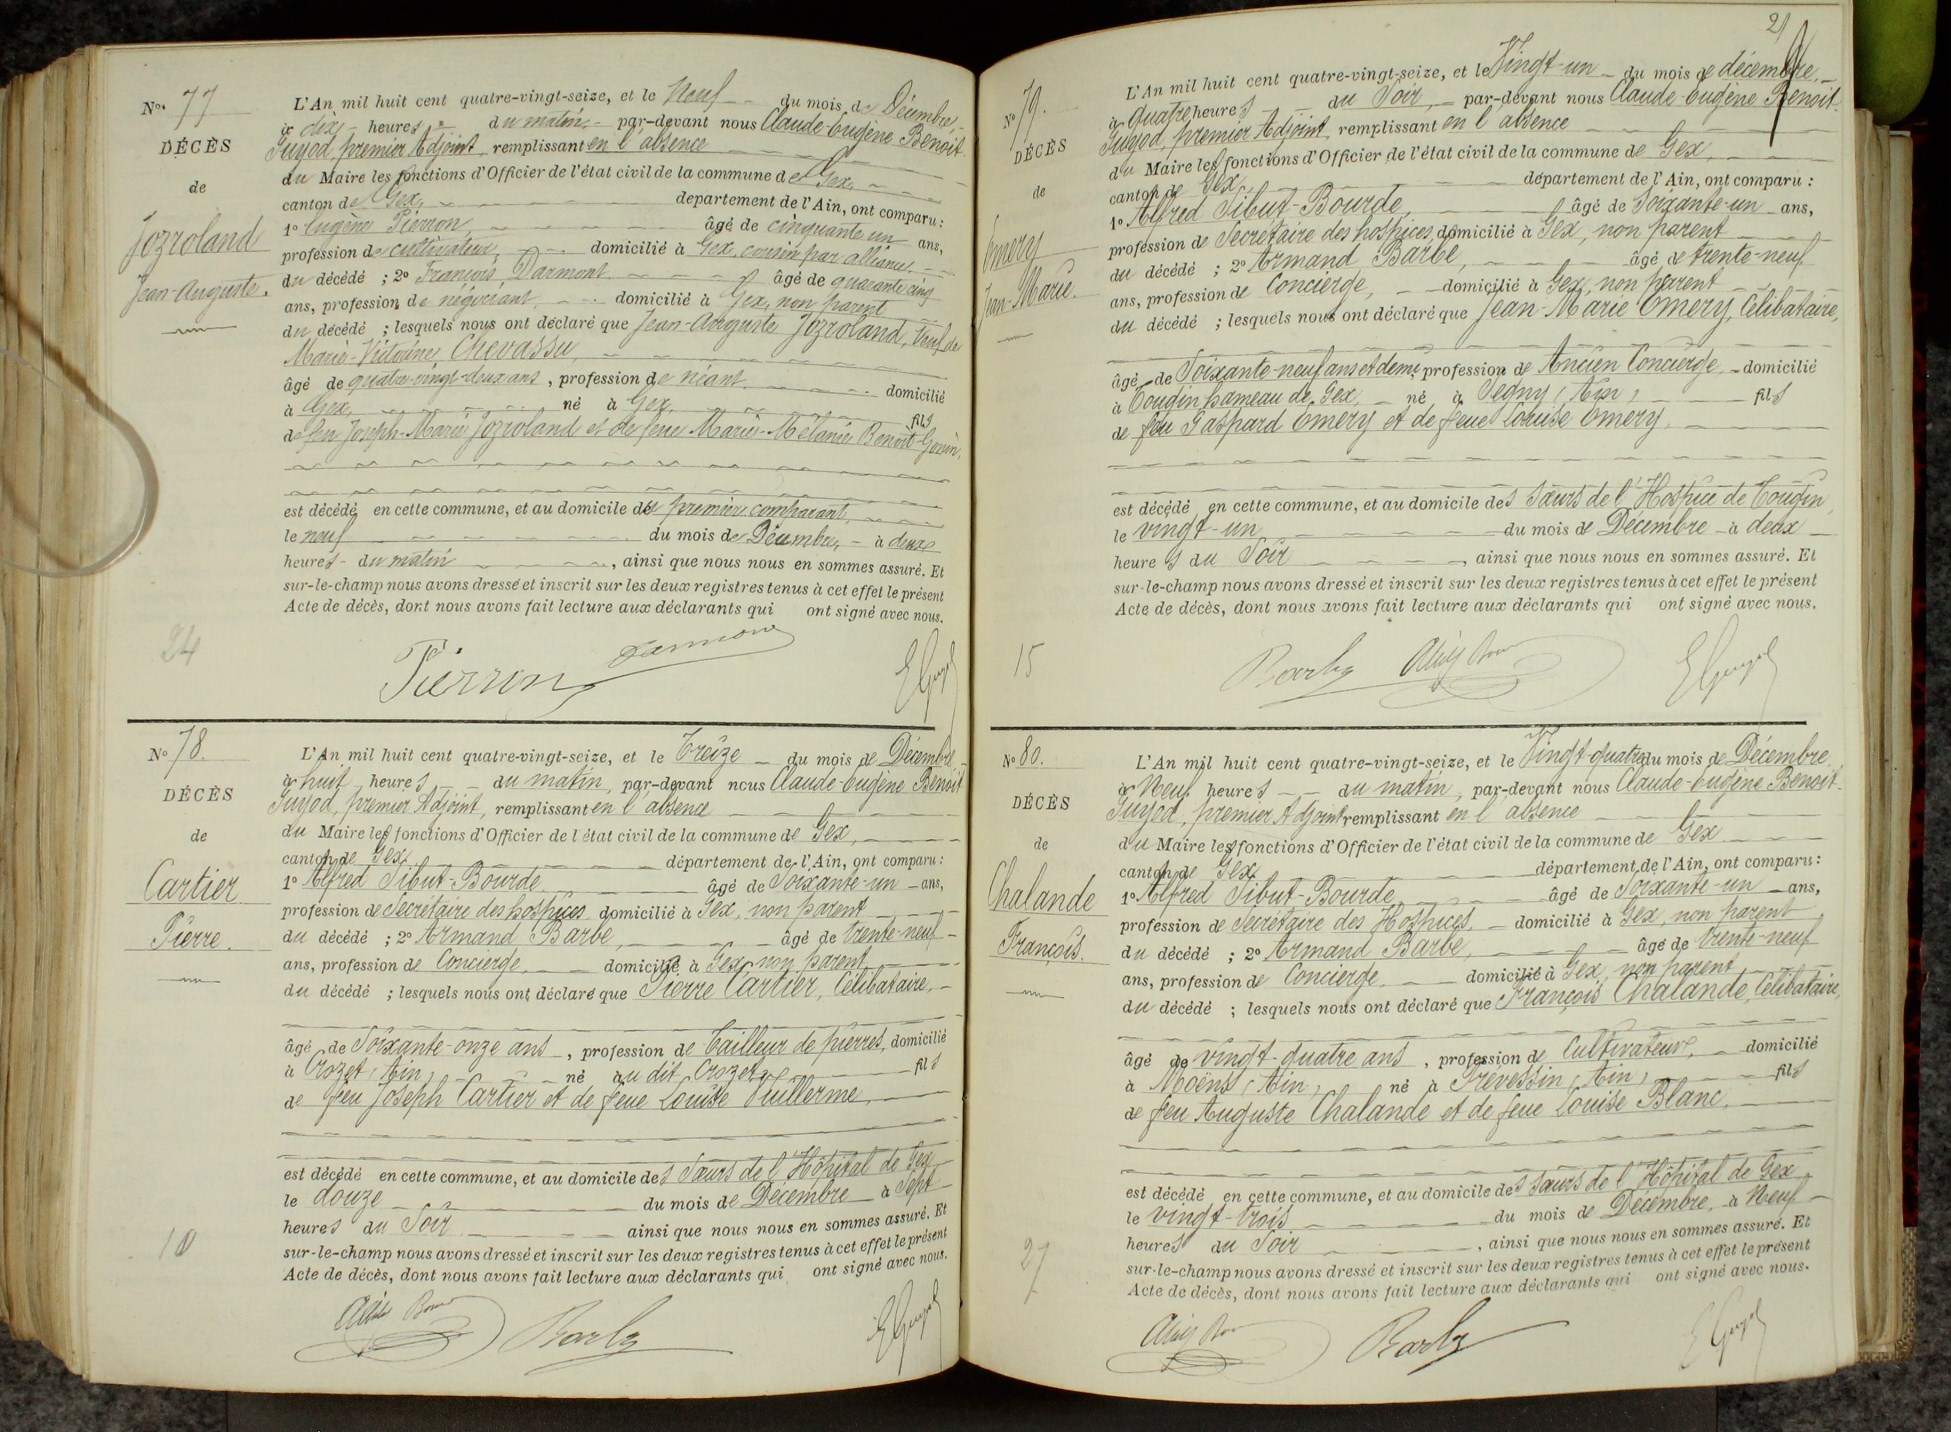 No. 77
DÉCÈS
de
Jozroland
Jean-Auguste.
24
L'An mil huit cent quatre-vingt-seize, et le Neuf du mois de Décembre
à dix heures du matin, par-devant nous Claude Eugène Benoit
Guyod, premier Adjoint remplissant en l'absence
du Maire les fonctions d'Officier de l'état civil de la commune de Gex,
canton de Gex, département de l'Ain, ont comparu:
1o Eugène Pierron, âgé de cinquante un ans,
profession de cultivateur, domicilié à Gex, cousin par alliance
du décédé ; 2o François Darmont âgé de quarante cinq
ans, profession de négociant, domicilié à Gex, non parent
du décédé ; lesquels nous ont déclaré que Jean-Auguste Jozroland, veuf de
Marie-Victorine Chevassu,
âgé de quatre-vingt-deux ans, profession de néant domicilié
à Gex, né à Gex, fils
de feu Joseph-Marie Jozroland et de feue Marie-Mélanie Benoit-Gonin.
est décédé en cette commune, et au domicile du premier comparant,
le neuf du mois de Décembre, à deux
heures du matin, ainsi que nous nous en sommes assuré. Et
sur-le-champ nous avons dressé et inscrit sur les deux registres tenus à cet effet le présent
Acte de décès, dont nous avons fait lecture aux déclarants qui ont signé avec nous.
Pierron Darmont EGuyod
No 78.
DÉCÈS
de
Cartier
Pierre.
10
L'An mil huit cent quatre-vingt-seize, et le Treize du mois de Décembre
à huit heures du matin, par-devant nous Claude-Eugène Benoit
Guyod, premier Adjoint, remplissant en l'absence
du Maire les fonctions d'Officier de l'état civil de la commune de Gex,
canton de Gex, département de l'Ain, ont comparu:
1o Alfred Sibut-Bourde âgé de Soixante-un ans,
profession de Secrétaire des hospices domicilié à Gex, non parent
du décédé ; 2o Armand Barbe, âgé de trente-neuf
ans, profession de Concierge, domicilié à Gex, non parent
du décédé ; lesquels nous ont déclaré que Pierre Cartier, Célibataire,
âgé de Soixante-onze ans, profession de Tailleur de pierres, domicilié
à Crozet, Ain, né au dit Crozet, fils
de feu Joseph Cartier et de feue Louise Vuillerme,
est décédé en cette commune, et au domicile des Sœurs de l'Hôpital de Gex
le douze du mois de Décembre à Sept
heures du Soir ainsi que nous nous en sommes assuré. Et
sur-le-champ nous avons dressé et inscrit sur les deux registres tenus à cet effet le présent
Acte de décès, dont nous avons fait lecture aux déclarants qui ont signé avec nous.
Barbe EGuyod
21
No 79.
DÉCÈS
de
Emery
Jean-Marie.
15
L'An mil huit cent quatre-vingt-seize, et le Vingt-un du mois de décembre
à Quatre heures du Soir, par-devant nous Claude-Eugène Benoit
Guyod, premier Adjoint, remplissant en l'absence
du Maire les fonctions d'Officier de l'état civil de la commune de Gex,
canton de Gex département de l'Ain, ont comparu :
1o Alfred Sibut-Bourde, âgé de Soixante-un ans,
profession de Secrétaire des hospices, domicilié à Gex, non parent
du décédé ; 2o Armand Barbe, âgé de trente-neuf
ans, profession de Concierge, domicilié à Gex, non parent
du décédé ; lesquels nous ont déclaré que Jean-Marie Emery, Célibataire,
âgé de Soixante-neuf ans et demi, profession de Ancien Concierge, domicilié
à Tougin hameau de Gex, né à Segny, Ain, fils
de feu Gaspard Emery et de feue Louise Emery.
est décédé en cette commune, et au domicile des Sœurs de l'Hospice de Tougin,
le vingt-un du mois de Décembre à deux
heures du Soir, ainsi que nous nous en sommes assuré. Et
sur-le-champ nous avons dressé et inscrit sur les deux registres tenus à cet effet le présent
Acte de décès, dont nous avons fait lecture aux déclarants qui ont signé avec nous.
Barbe EGuyod
No 80.
DÉCÈS
de
Chalande
François.
27
L'An mil huit cent quatre-vingt-seize, et le Vingt-quatre du mois de Décembre
à Neuf heures du matin, par-devant nous Claude-Eugène Benoit
Guyod, premier Adjoint remplissant en l'absence
du Maire les fonctions d'Officier de l'état civil de la commune de Gex
canton de Gex département de l'Ain, ont comparu:
1o Alfred Sibut-Bourde âgé de Soixante-un ans,
profession de Secrétaire des Hospices, domicilié à Gex, non parent
du décédé ; 2o Armand Barbe, âgé de trente-neuf
ans, profession de Concierge domicilié à Gex, non parent
du décédé ; lesquels nous ont déclaré que François Chalande, Célibataire,
âgé de vingt-quatre ans, profession de Cultivateur, domicilié
à Moëns, Ain, né à Prévessin, Ain, fils
de feu Auguste Chalande et de feue Louise Blanc.
est décédé en cette commune, et au domicile des Sœurs de l'Hôpital de Gex
le vingt-trois du mois de Décembre, à Neuf
heures du Soir, ainsi que nous nous en sommes assuré. Et
sur-le-champ nous avons dressé et inscrit sur les deux registres tenus à cet effet le présent
Acte de décès, dont nous avons fait lecture aux déclarants qui ont signé avec nous.
Barbe EGuyod